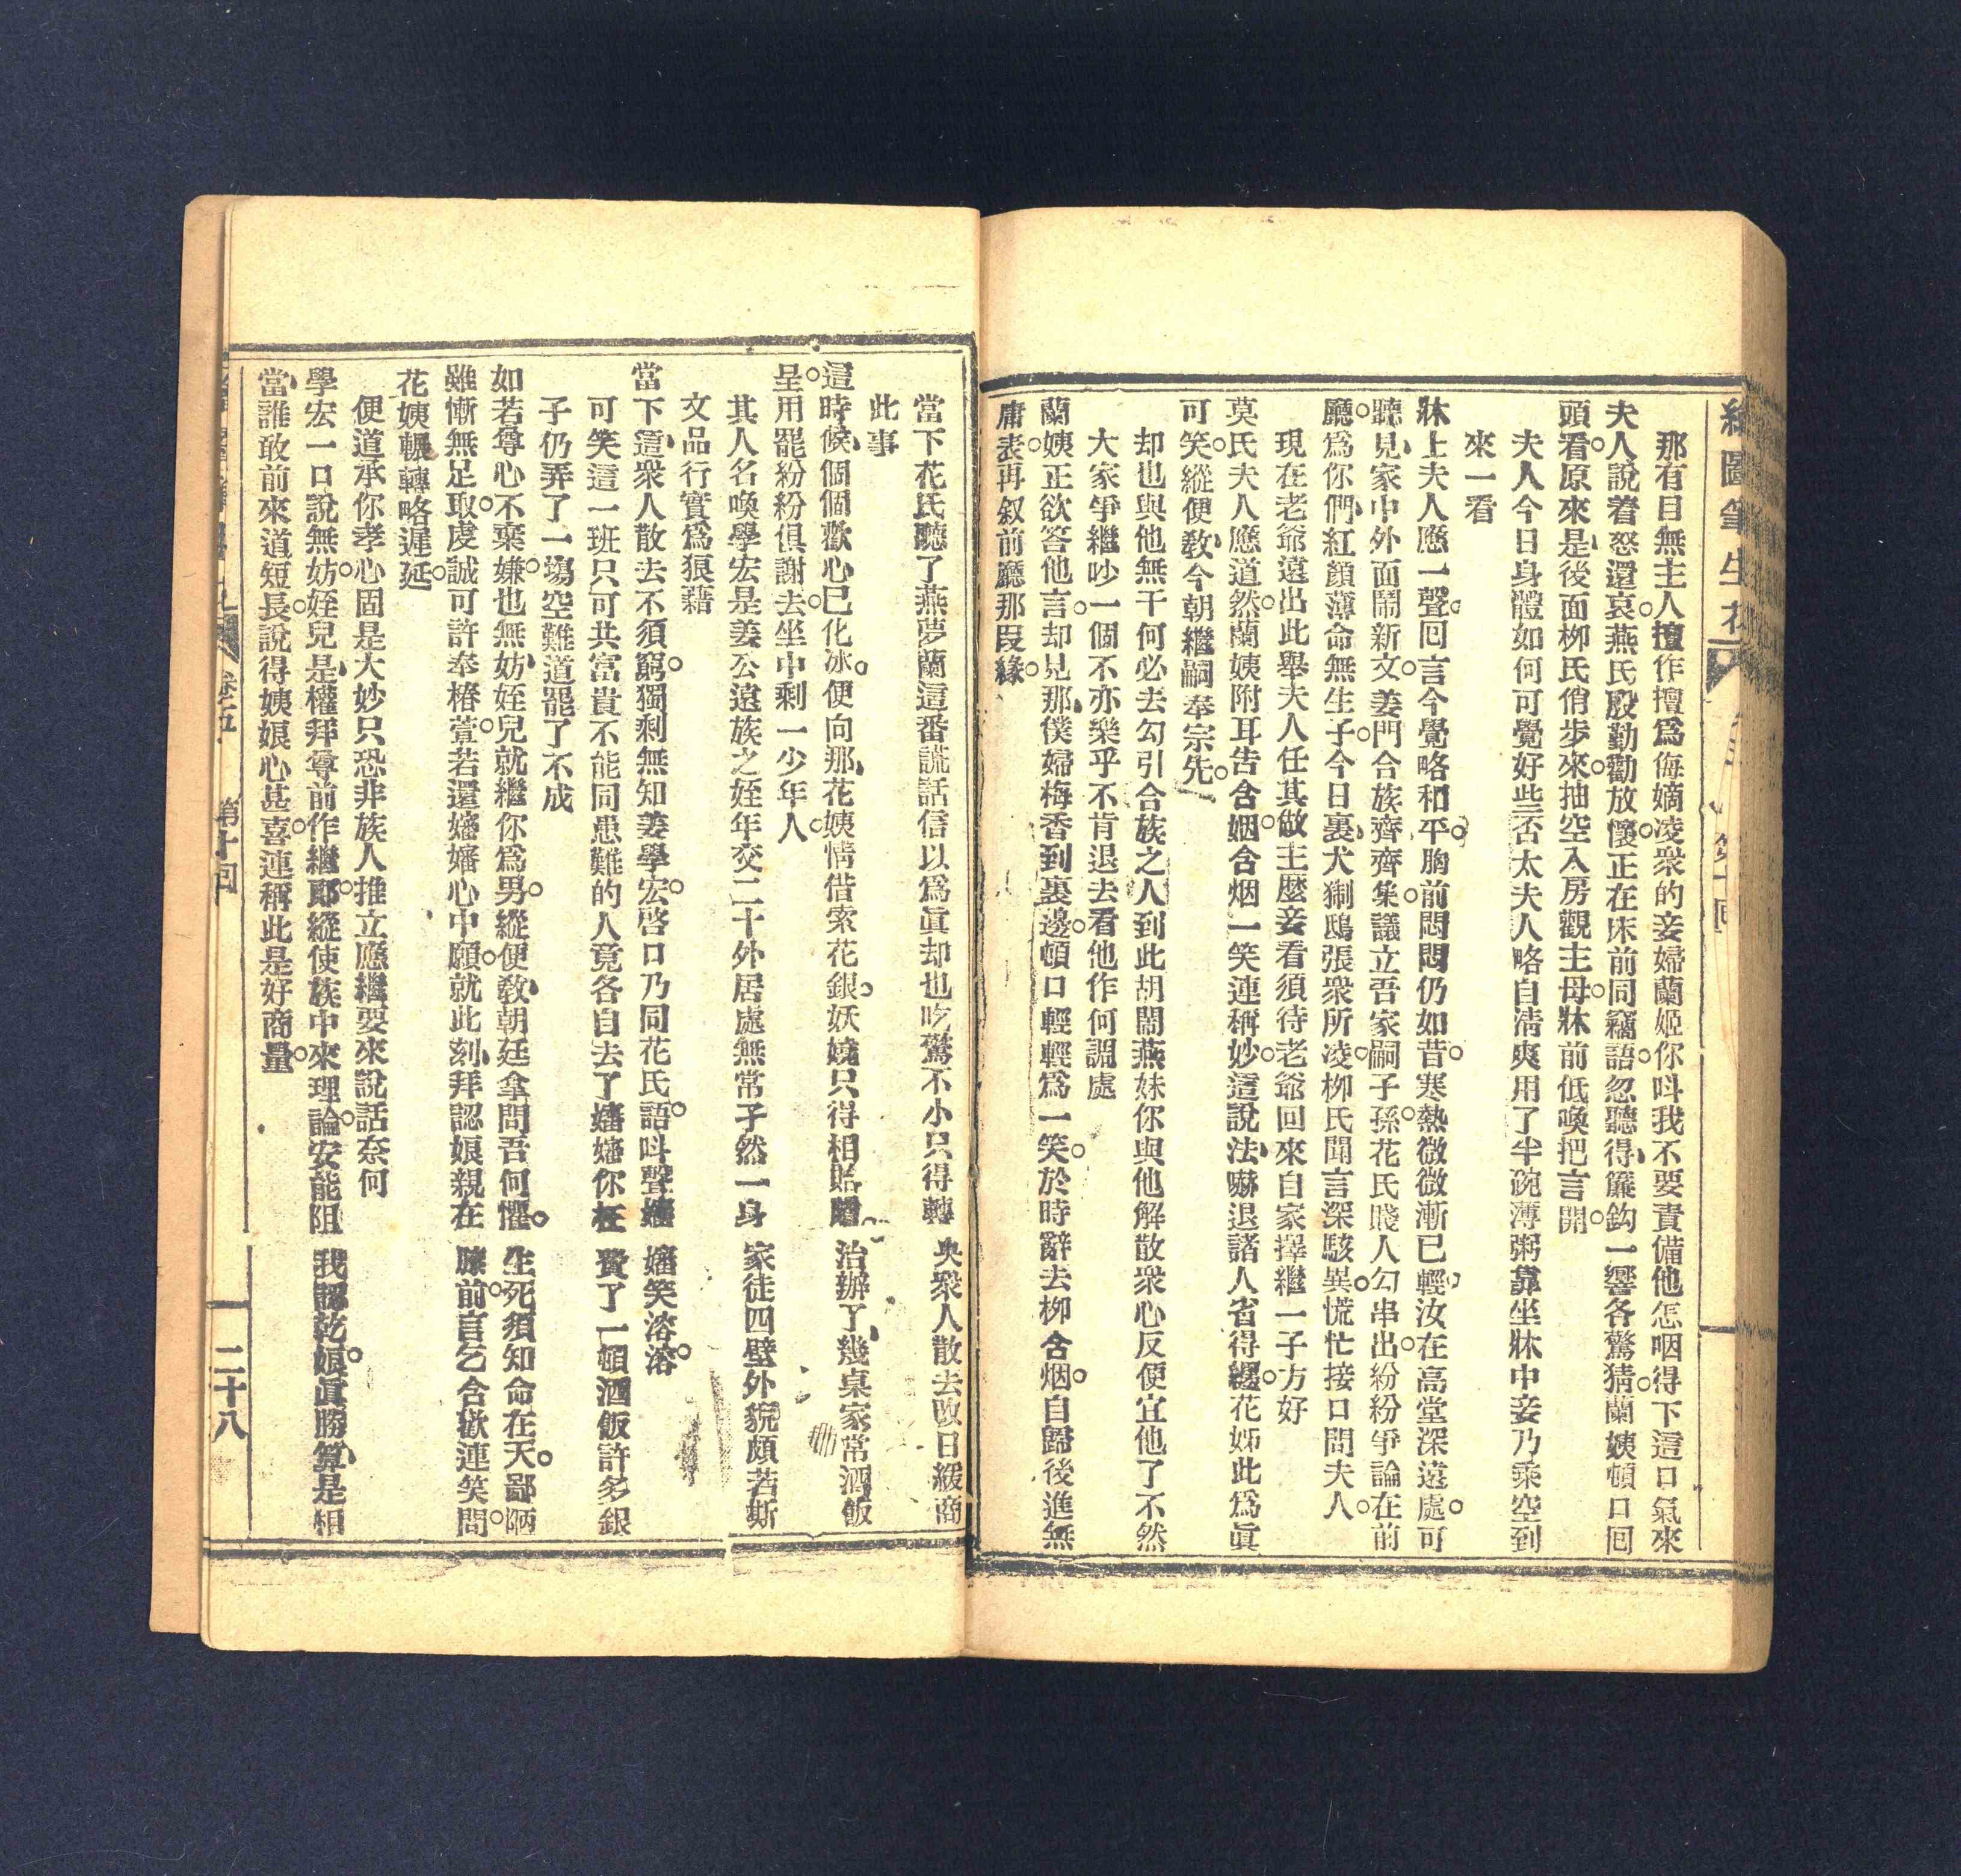 繪圖筆生花
那有目無主人擅作擅爲侮嫡凌衆的妾婦蘭姬你呌我不要責備他怎咽得下這口氣來
夫人說着怒還哀○燕氏殷勤勸放懷○正在床前同竊語○忽聽得簾鈎一響各驚猜○蘭姨頓口囘
頭看○原來是後面柳氏俏步來○抽空入房觀主母○牀前低喚把言開○
夫人今日身體如何可覺好些否太夫人略自清爽用了半碗薄粥靠坐牀中妾乃乘空到
來一看
牀上夫人應一聲○囘言今覺略和平○胸前悶悶仍如昔○寒熱微微漸已輕○汝在高堂深遠處○可
聽見家中外面鬧新文○姜門合族齊齊集○議立吾家嗣子孫○花氏賤人勾串出○紛紛爭論在前
廳○爲你們紅顏薄命無生子○今日裏犬猘鴟張衆所凌○柳氏聞言深駭異○慌忙接口問夫人○
現在老爺遠出此舉夫人任其做主麽妾看須待老爺囘來自家擇繼一子方好
莫氏夫人應道然○蘭姨附耳告含姻○含烟一笑連稱妙○這說法嚇退諸人省得纒○花姊此爲眞
可笑○縱便敎今朝繼嗣奉宗先○
却也與他無干何必去勾引合族之人到此胡閙燕妹你與他解散衆心反便宜他了不然
大家爭繼吵一個不亦樂乎不肯退去看他作何調處
蘭姨正欲答他言○却見那僕婦梅香到裏邊○頓口輕輕爲一笑○於時辭去柳含烟○自歸後進無
庸表○再叙前廳那叚緣○
當下花氏聽了燕夢蘭這番謊話信以爲眞却也吃驚不小只得轉央衆人散去改日緩商
此事
這時候個個歡心已化冰○便向那花姨情借索花銀○妖嬈只得相貽贈○治辦了幾桌家常酒飯
呈○用罷紛紛俱謝去○坐中剩一少年人○
其人名喚學宏是姜公遠族之姪年交二十外居處無常孑然一身家徒四壁外貌頗若斯
文品行實爲狠藉
當下這衆人散去不須窮○獨剩無知姜學宏○啓口乃同花氏語○呌聲嬸嬸笑溶溶○
可笑這一班只可共富貴不能同患難的人竟各自去了嬸嬸你枉費了一頓酒飯許多銀
子仍弄了一塲空難道罷了不成
如若尊心不棄嫌○也無妨姪兒就繼你爲男○縱便敎朝廷拿問吾何懼○生死須知命在天○鄙陋
雖慚無足取○虔誠可許奉椿萱○若還嬸嬸心中願○就此刻拜認娘親在膝前○言乞含歡連笑問○
花姨輾轉略遲延○
便道承你孝心固是大妙只恐非族人推立應繼要來說話奈何
學宏一口說無妨○姪兒是權拜尊前作繼郞○縱使族中來理論○安能阻我認乾娘○眞勝算是相
當○誰敢前來道短長○說得姨娘心甚喜○連稱此是好商量○
卷五　第十回
二十八